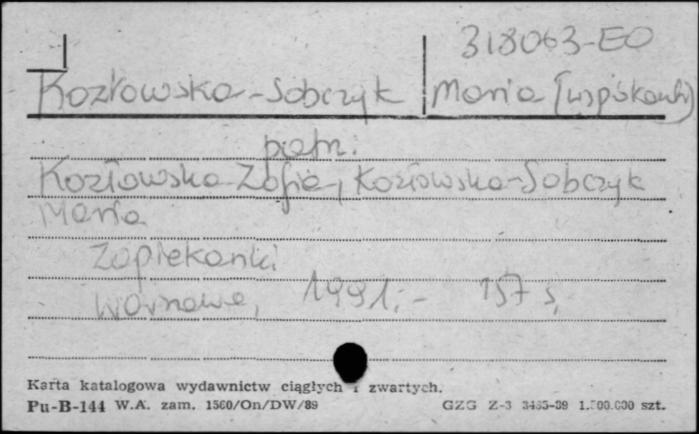 318063-EO
Kozłowska-Sobczyk Maria (współaut.)
patrz:
Kozłowska Zofia, Kozłowska-Sobczyk
Maria
Zapiekanki
Warszawa, 1991; - 157 s.
Karta katalogowa wydawnictw ciągłych i zwartych.
Pu-B-144 W.A. zam. 1560/On/DW/89 GZG Z-3 3435-89 1.500.000 szt.